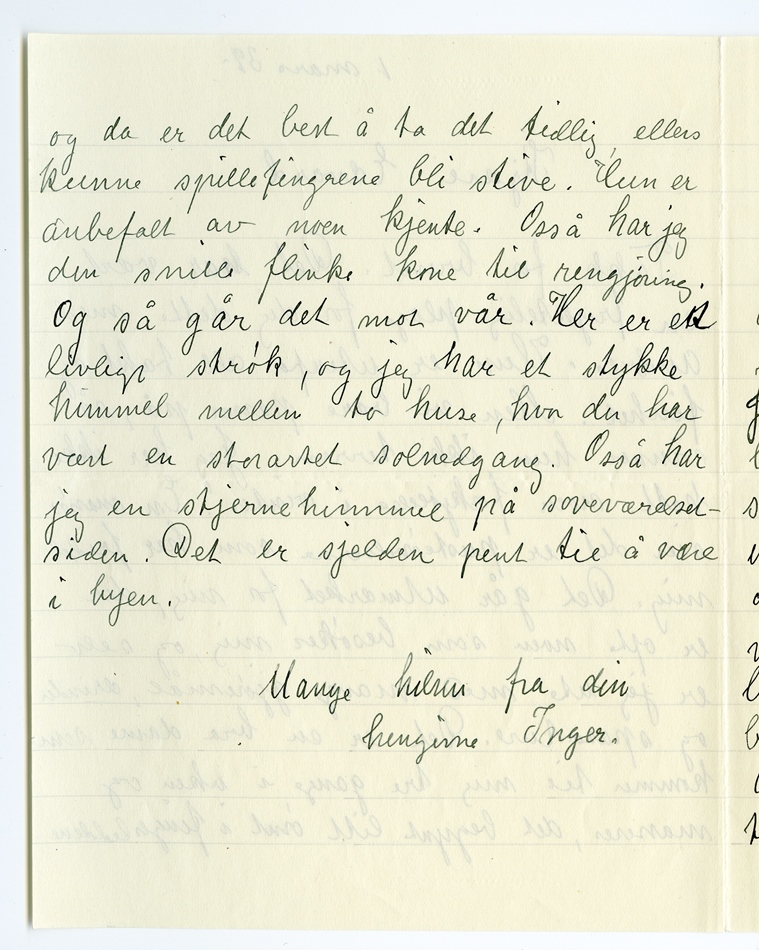 og da er det best å ta det tidlig, ellers
kunne spillefingrene bli stive. Hun er
anbefalt av noen kjente. Osså har jeg
den snille flinke kone til rengjøring.
Og så går det mot vår. Her er et
livligt strøk, og jeg har et stykke
himmel mellen to huse, hvor der har
vært en storartet solnedgang. Osså har
jeg en stjernehimmel på soveværelset-
siden. Det er sjelden pent til å være
i byen.
Mange hilsen fra din
hengivne Inger.